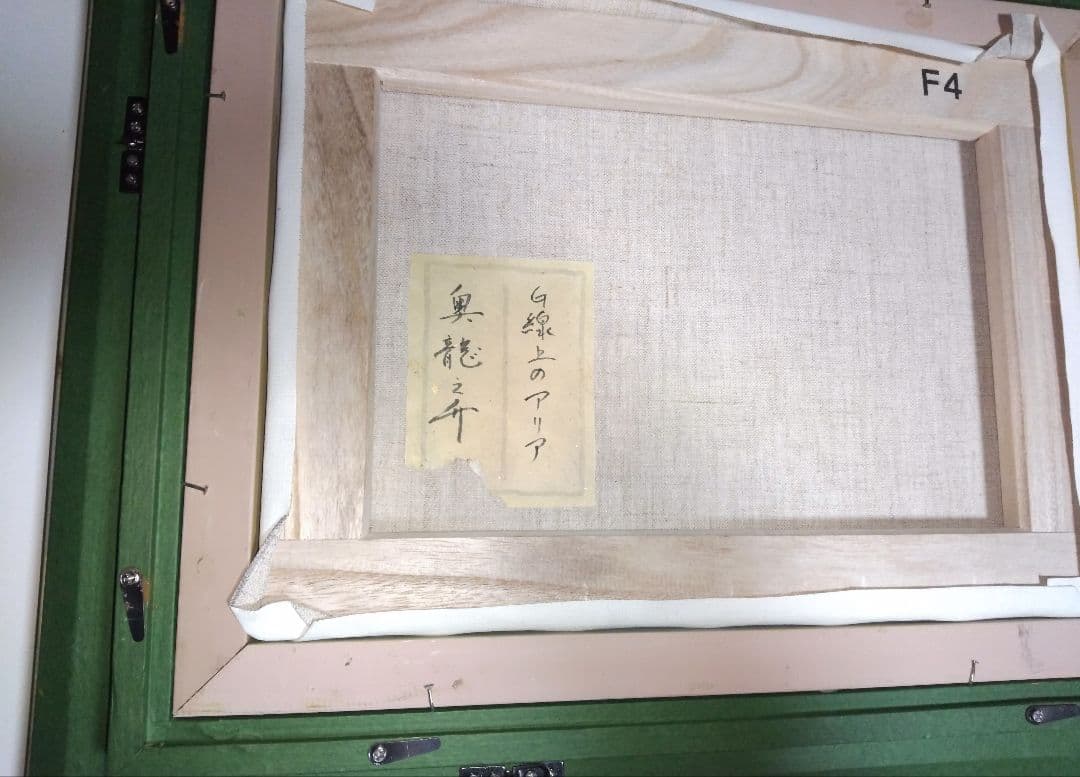 F4
G線上のアリア
奥龍之介